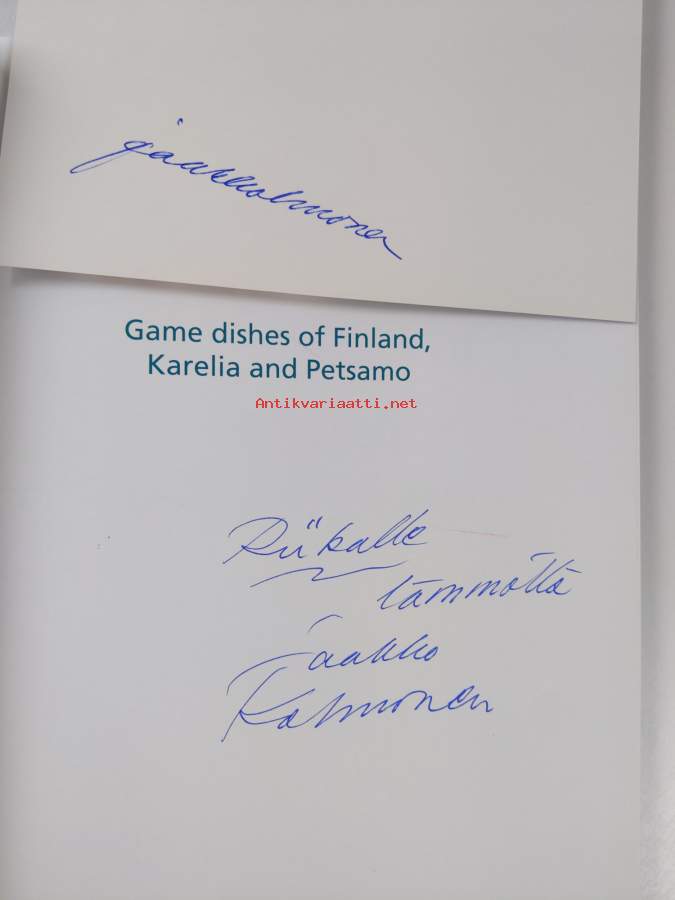 jaakkolmonen
Game dishes of Finland,
Karelia and Petsamo
Antikvariaatti.net
Riikalle
lämmöllä
Jaakko
Kolmonen